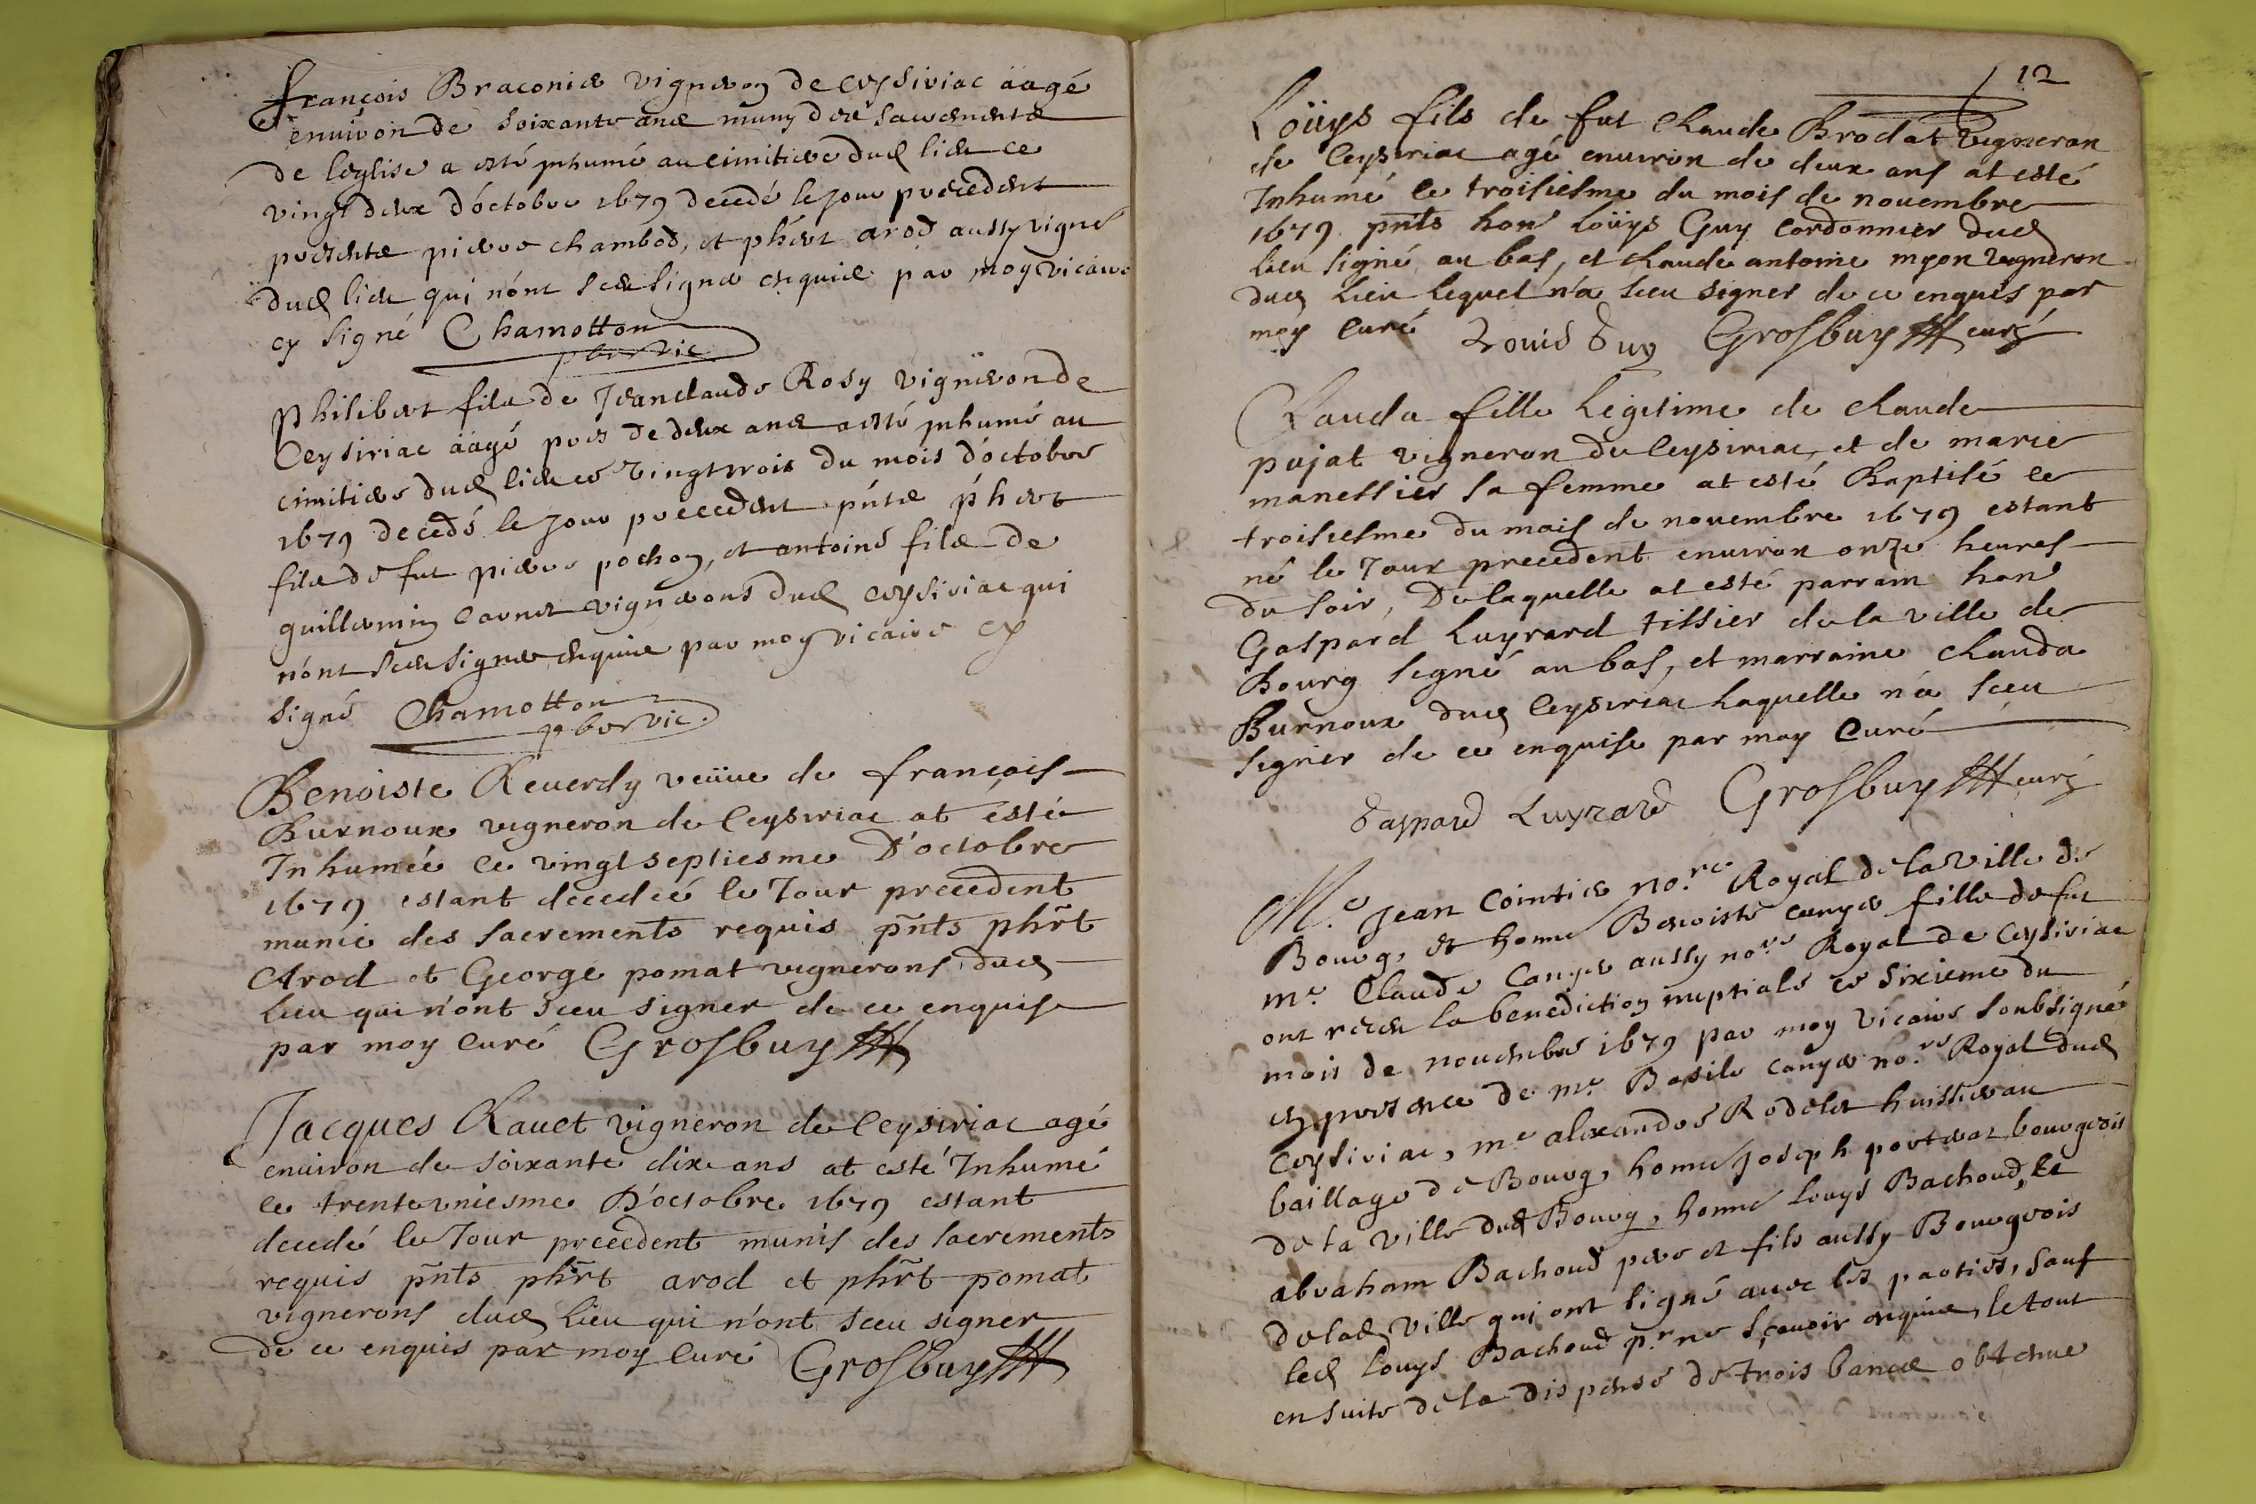 françois Braconier vigneron de ceysiriac âagé
enuiron de soixante ans muny des sacements
de leglise a esté jnhumé au cimitiere dud lieu ce
vingt deux d'octobre 1679 decedé le jour precedent
presents pierre chambod, et phert arod aussy vigne
dud lieu qui n'ont sceu signer enquis par moy vicaire
cy signé Chamotton
pbre vic
Philibert fils de Jeanclaude Rosy vigneron de
Ceysiriac âagé pres de deux ans a esté jnhumé au
cimitiere dud lieu ce vingt trois du mois d'octobre
1679 decedé le jour precedent pnts phert
fils de fut pierre pochon, et antoine fils de
guillermin Cornet vignerons dud ceysiriac qui
n'ont sceu signer enquis par moy vicaire cy
signé Chamotton
pbre vic.
Benoiste Reuerdy veüue de françois
Burnoux vigneron de Ceysiriac at ésté
Inhumée ce vingt septiesme D'octobre
1679 estant decedeé le Jour precedent
munie des sacrements requis pñts phr̃t
Arod et George pomat vignerons dud
lieu qui n'ont sceu signer de ce enquis
par moy Curé Grosbuy
Jacques Rauet vigneron de Ceysiriac agé
enuiron de soixante dix ans at esté Inhumé
ce trente vniesme D'octobre 1679 estant
decedé le Jour precedent munis des sacrements
requis pñts phr̃t arod et phr̃t pomat
vignerons dud lieu qui n'ont sceu signer
de ce enquis par moy Curé Grosbuy
12
Loüys fils de fut Claude Brodat vigneron
de Ceysiriac agé enuiron de deux ans at esté
Inhumé ce troisiesme du mois de nouembre
1679 pñts hon Loüys Guy Cordonnier dud
lieu signé au bas, et claude antoine myon vigneron
dud lieu lequel n'a sceu signer de ce enquis par
moy Curé Louis Guy Grosbuy curé
Clauda fille legitime de claude
pujat vigneron du Ceysiriac, et de marie
manessier sa femme at esté Baptisé ce
troisiesme du mois de nouembre 1679 estant
né le Jour precedent enuiron onze heures
du soir, De laquelle at esté parrain hon
Gaspard Luyrard tissier de la ville de
Bourg signé au bas, et marraine Clauda
Burnoux dud Ceysiriac laquelle n'a sceu
signer de ce enquise par moy Curé
Gaspard Luyrard Grosbuy curé
Me Jean Cointier no.re Royal de la ville de
Bourg, et honne Benoiste canyer fille de fut
me. Claude Canyer aussy nore Royal de ceysiriac
ont receu la benediction nuptiale ce sixieme du
mois de nouembre 1679 par moy vicaire soubsigné
en presence de me Basile canyer no.re Royal dud
Ceysiriac, me alexandre Rodelet huissier au
baillage de Bourg, honne Joseph porterat bourgeois
de la ville dud Bourg, honne Louys Bachoud, et
abraham Bachoud pere et fils aussy Bourgeois
de lad ville qui ont signé auec les parties, sauf
led Louys Bachoud pr ne sçauoir enquis, le tout
en suite de la dispense de trois bancs obtenue